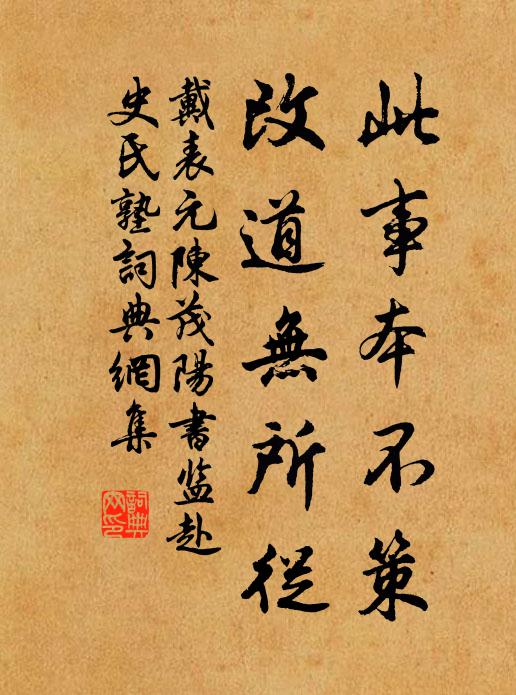 此事本不策
改道無所從
戴表元陳茂陽書监赴
史氏塾詞典網集
詞典网印